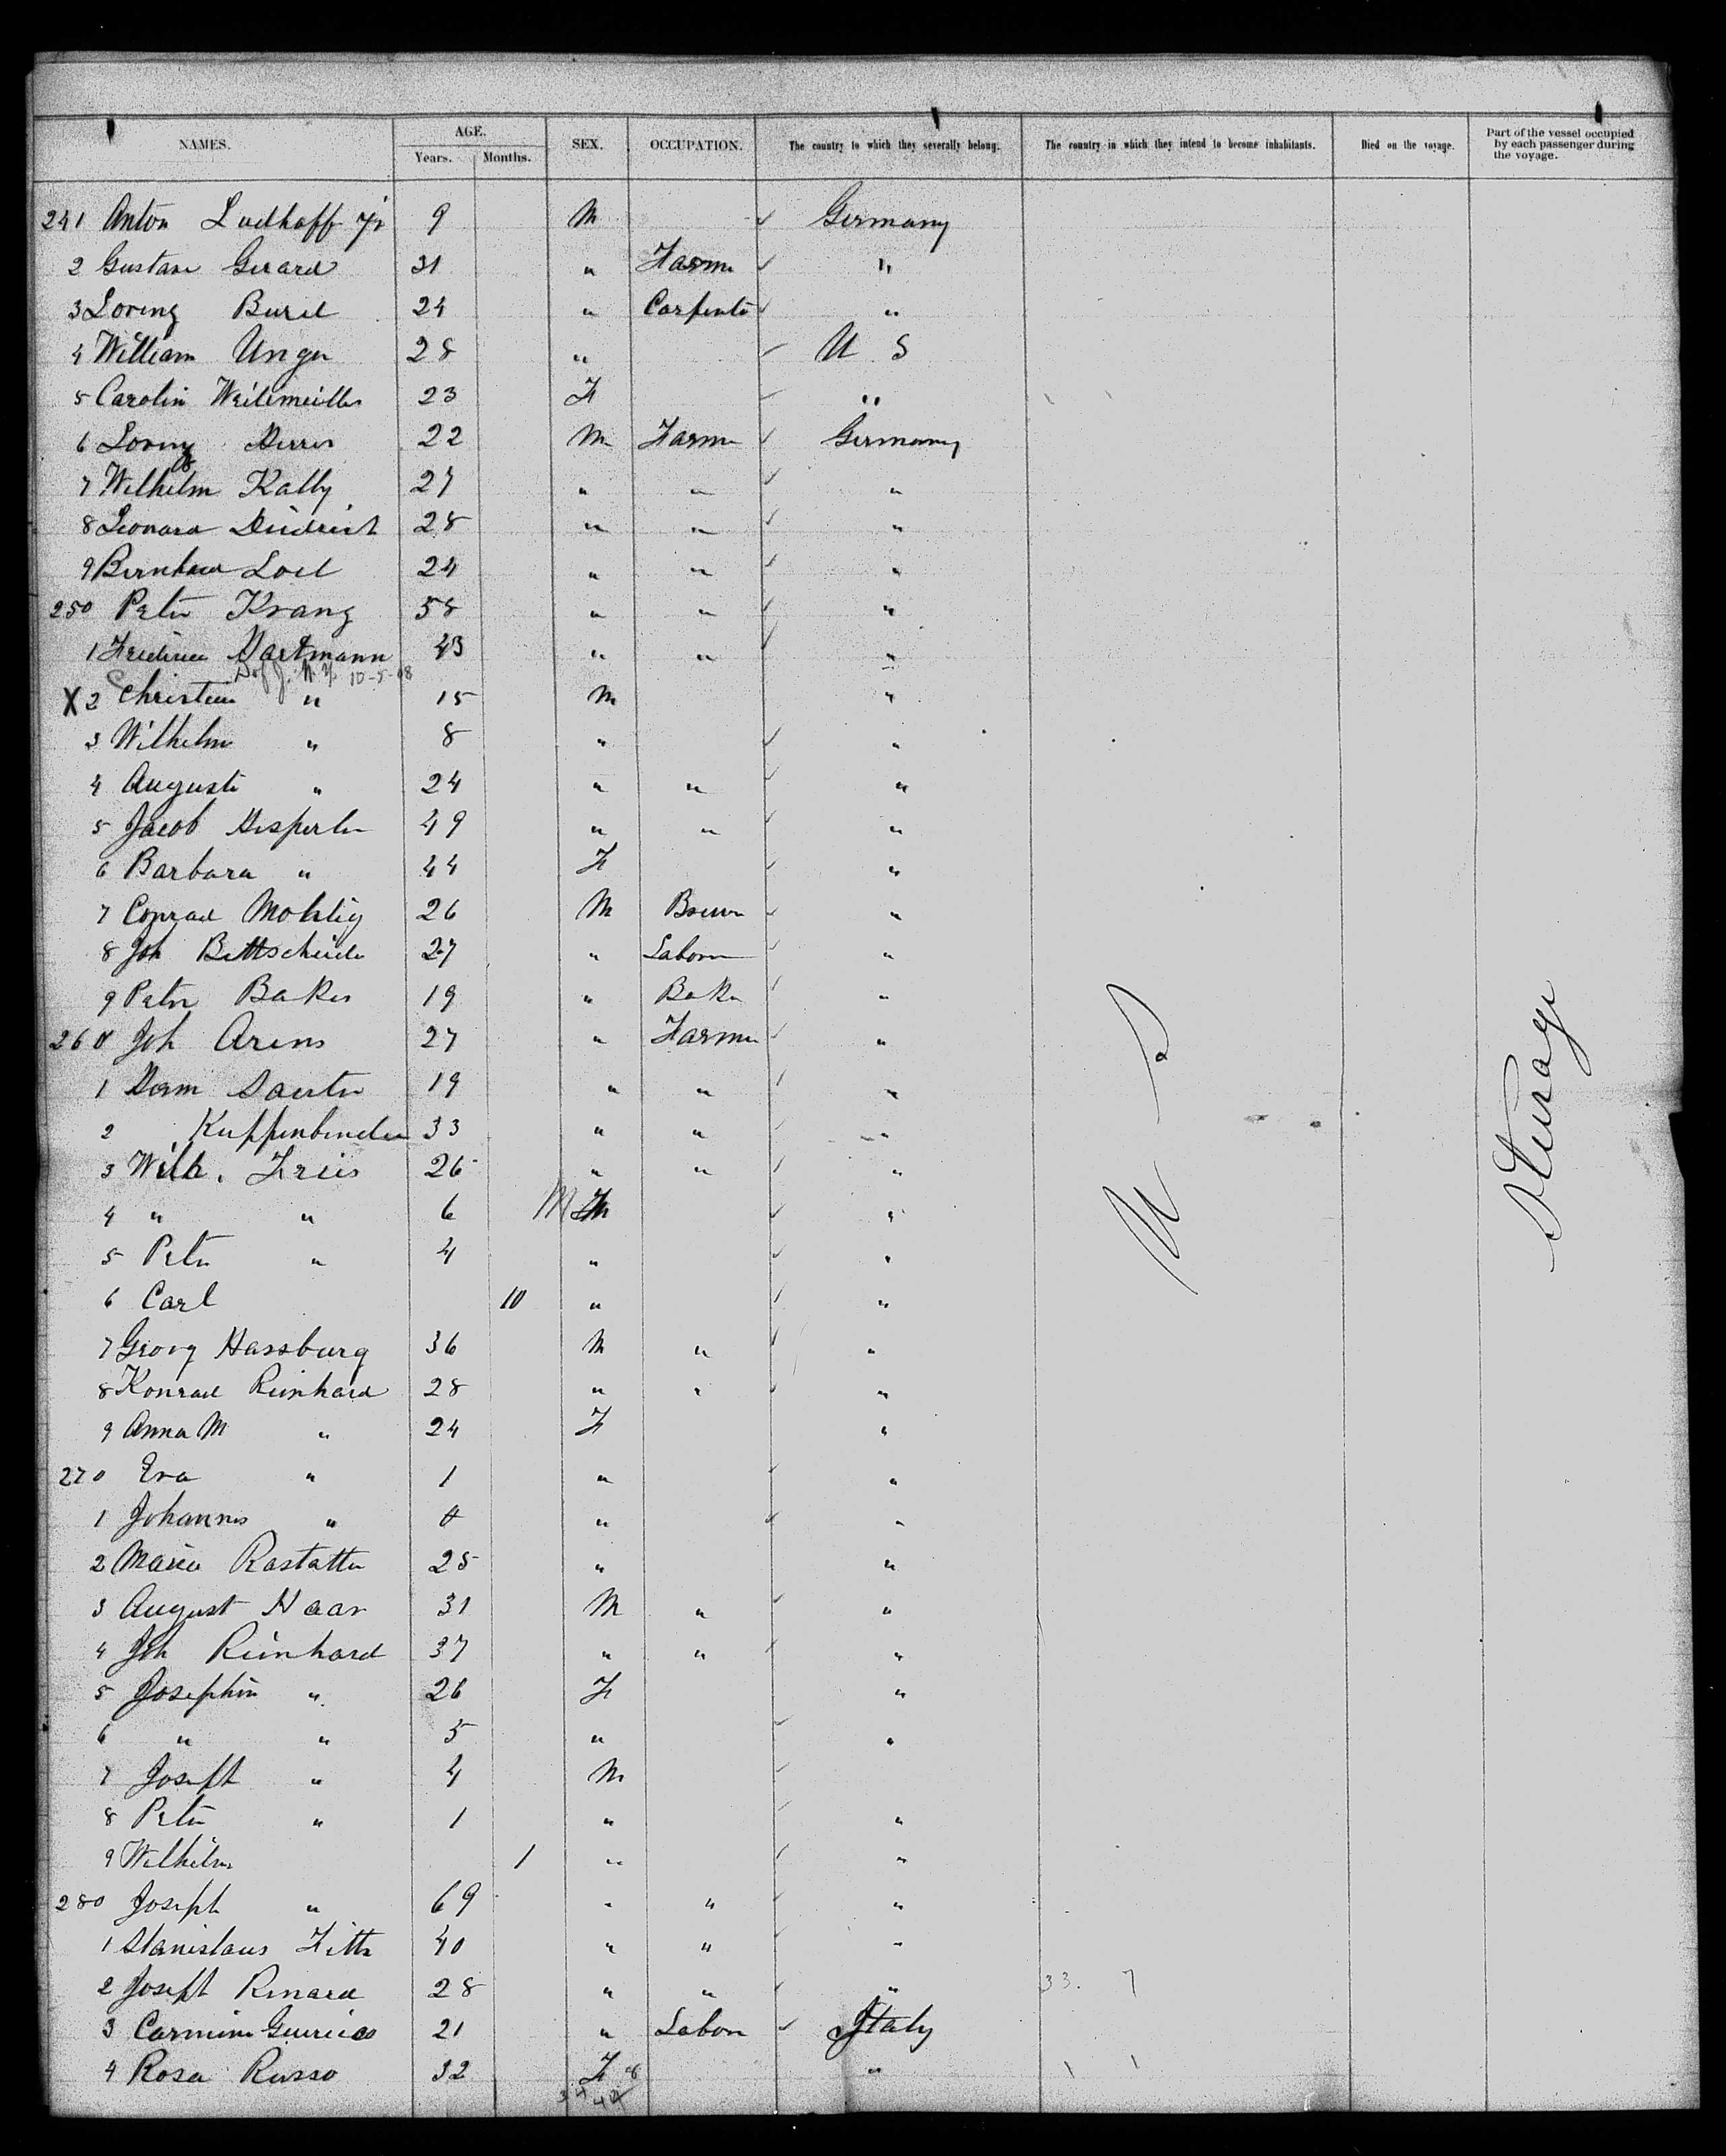 NAMES. AGE. SEX. OCCUPATION. The country to which they severally belong. The country in which they intend to become inhabitants. Died on the voyage. Part of the vessel occupied by each passenger during the voyage.
Years. Months.
241 Anton Ludhoff Jr 9 M Germany
2 Gustav Gerard 31 " Farm "
3 Lorenz 24 " Carpente "
4 William Unger 28 " U S
5 Carolin 23 F "
6 Lorenz 22 M Farm Germany
7 Wilhelm Kally 27 " " "
8 Leonard 28 " " "
9 24 " " "
250 Peter Kranz 58 " " "
1 Hartmann 43 " " "
10-5-08
X 2 Christian " 15 M "
3 Wilhelm " 8 " "
4 August " 24 " " "
5 Jacob Hesperle 49 " " "
6 Barbara " 44 F "
7 Conrad Mohlig 26 M Brewr "
8 Joh Bettscheide 27 " Labor "
9 Peter Baker 19 " Baker "
260 Joh Arens 27 " Farmer "
1 Sauter 19 " " "
2 Kuppenbender 33 " " "
3 Wilh. Freis 26 " " "
4 " " 6 M "
5 Peter " 4 " "
6 Carl 10 " "
7 Georg Hassburg 36 M " "
8 Konrad Reinhard 28 " " "
9 Anna M " 24 F "
270 Eva " 1 " "
1 Johannes " " "
2 Maria Rastatter 25 " "
3 August Haar 31 M " "
4 Joh Reinhard 37 " " "
5 Josephin " 26 F "
6 " " 5 " "
7 Joseph " 4 M
8 Peter " 1 " "
9 Wilhelm 1 " "
280 Joseph " 69 " " "
1 Stanislaus 40 " " "
2 Joseph Renard 28 " " " 33. 7
3 Carmine 21 " Labor Italy
4 Rosa Russo 32 F "
U S
Sterage